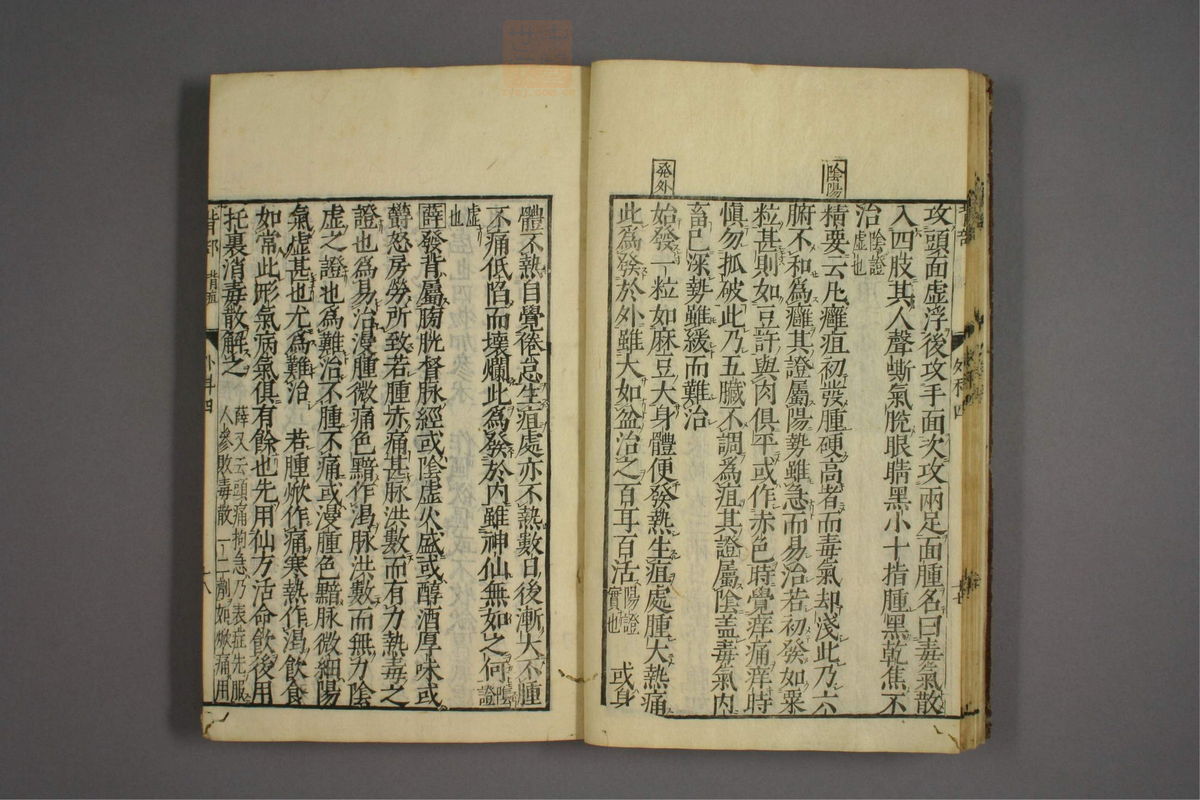 陰陽
發外
攻頭面虛浮後攻手面次攻兩足面腫名曰毒氣散
入四肢其人聲嘶氣脫眼睛黑小十指腫黑乾焦不
治陰證虛也
精要云凡癰疽初發腫硬高者而毒氣却淺此乃六
腑不和為癰其證屬陽勢雖急而易治若初發如粟
粒甚則如豆許與肉俱平或作赤色時覺痒痛痒時
慎勿抓破此乃五臟不調為疽其證屬陰盖毒氣内
畜已深勢雖緩而難治
始發一粒如麻豆大身體便發熱生疽處腫大熱痛
此為發於外雖大如盆治之百耳百活陽證實也 或身
體不熱自覺倦怠生疽處亦不熱數日後漸大不腫
不痛低陷而壞爛此為發於内雖神仙無如之何陰證
虛也
薛發背屬膀胱督脉經或陰虛火盛或醇酒厚味或
欝怒房勞所致若腫赤痛甚脉洪數而有力熱毒之
證也為易治漫腫微痛色黯作渴脉洪數而無力陰
虛之證也為難治不腫不痛或漫腫色黯脉微細陽
氣虛甚也尤為難治 若腫焮作痛寒熱作渴飲食
如常此形氣病氣俱有餘也先用仙方活命飲後用
托裏消毒散解之 薛又云頭痛拘急乃表症先服
人參敗毒散一二劑如焮痛用
背部
外科四
十八